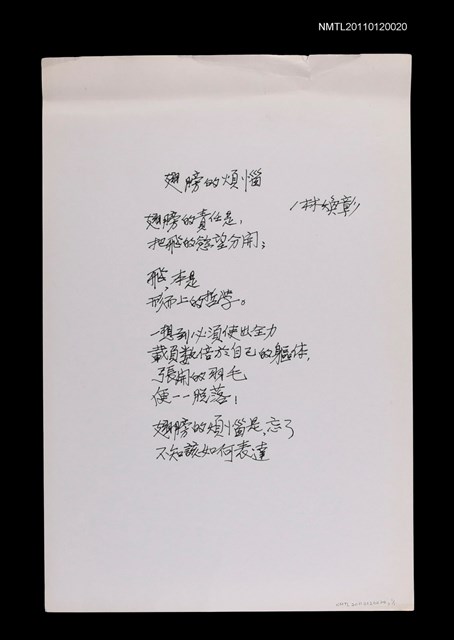 NMTL20110120020
翅膀的煩惱
/林煥彰
翅膀的責任是,
把飛的慾望分開;
飛,本是
形而上的哲学。
一想到必須使出全力
載負數倍於自己的軀体,
張開的羽毛
便一一脫落!
翅膀的煩惱是,忘了
不知該如何表達